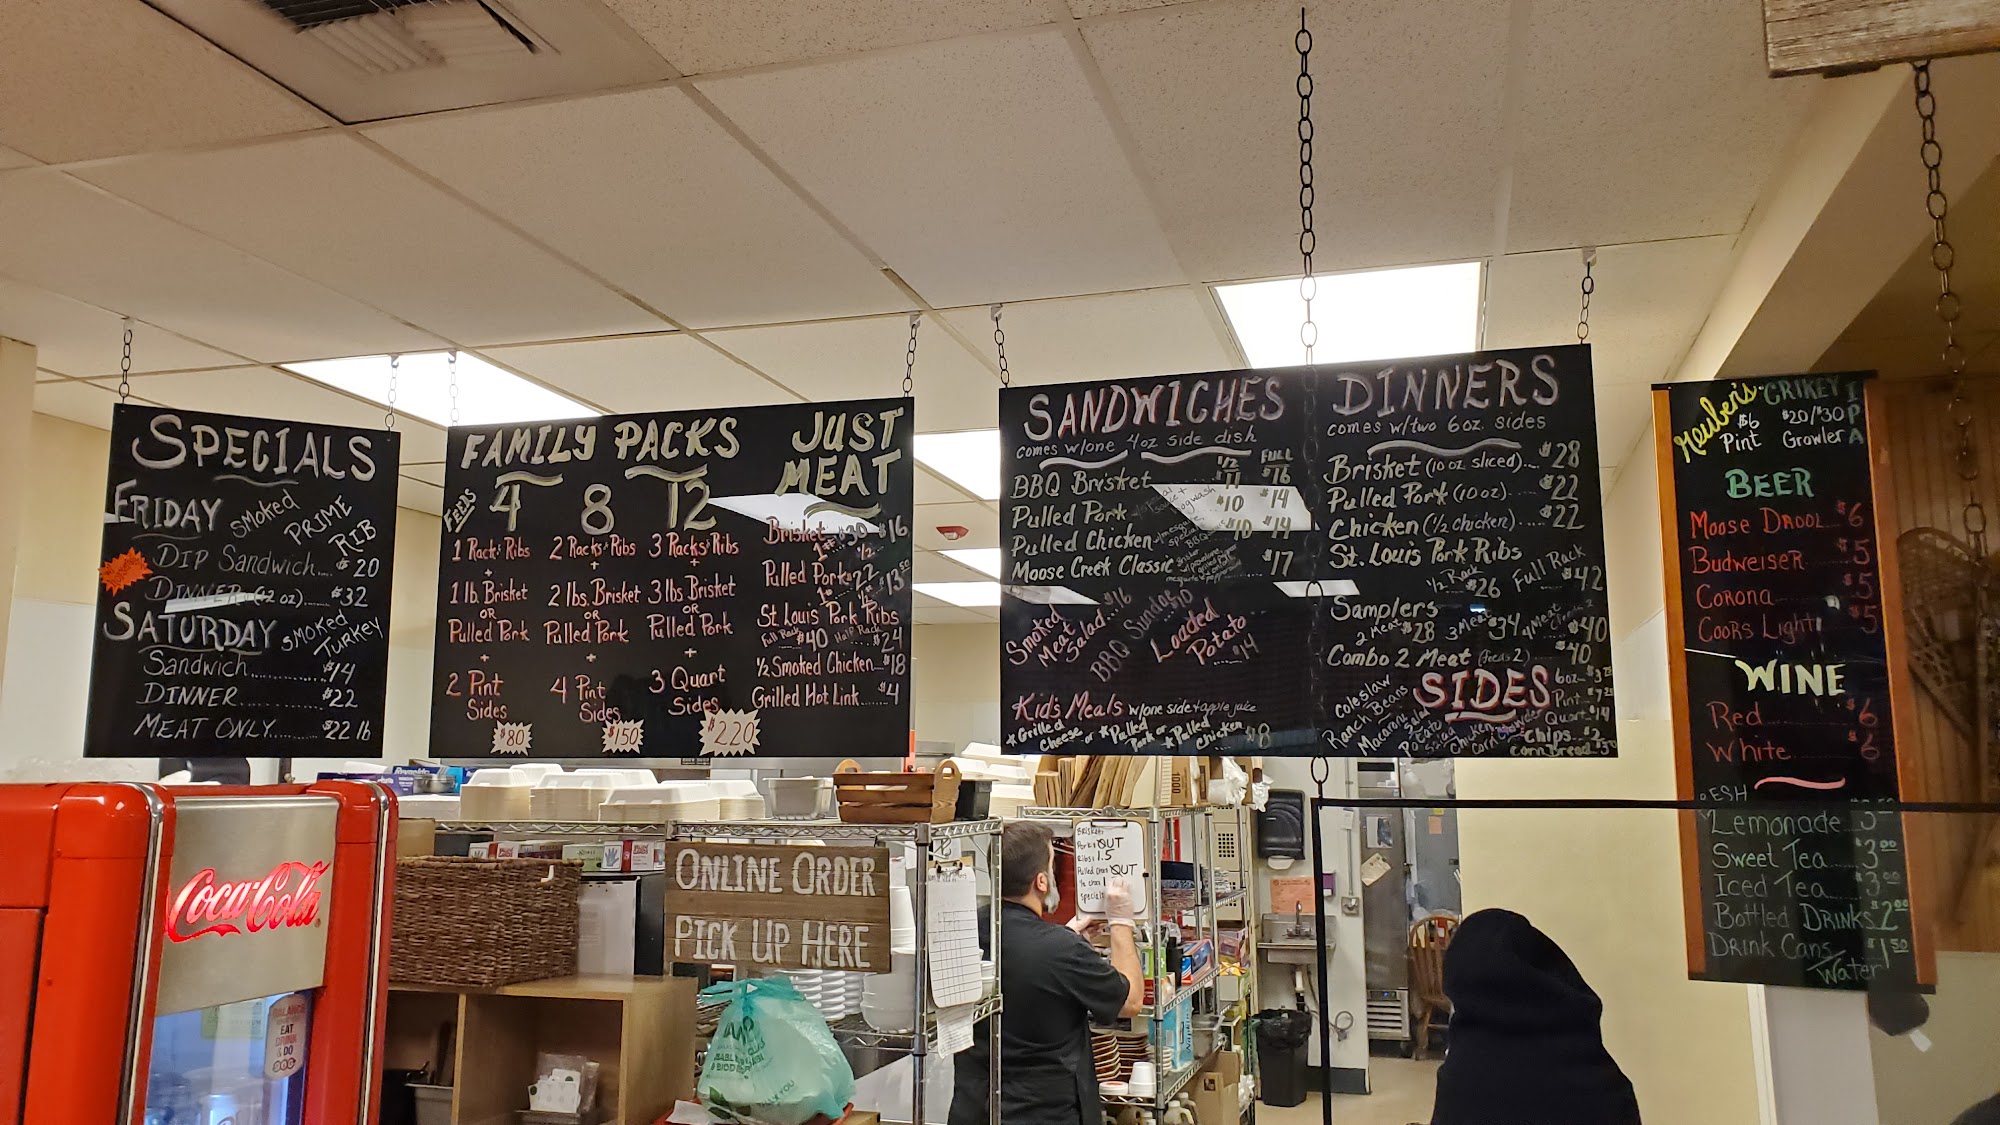 SPECIALS
FRIDAY SMOKED PRIME RIB
DIP Sandwich.... $20
DINNER (12 oz)...... $32
SATURDAY SMOKED TURKEY
Sandwich............ $14
DINNER.............. $22
MEAT ONLY.......... $22 lb
FAMILY PACKS
FEEDS 4 8 12
1 Rack Ribs 2 Racks Ribs 3 Racks Ribs
+ + +
1 lb. Brisket 2 lbs. Brisket 3 lbs Brisket
OR OR OR
Pulled Pork Pulled Pork Pulled Pork
+ + +
2 Pint Sides 4 Pint Sides 3 Quart Sides
$80 $150 $220
JUST MEAT
Brisket 1# $30 1/2 $16
Pulled Pork 1# 22 1/2 # $13.50
St. Louis Pork Ribs
Full Rack $40 Half Rack $24
1/2 Smoked Chicken... $18
Grilled Hot Link...... $4
SANDWICHES
comes w/one 4oz side dish
1/2 FULL
BBQ Brisket $11 $16
Pulled Pork $10 $14
Pulled Chicken $10 $14
Moose Creek Classic $17
Smoked Meat Salad $16
BBQ Sundae $10
Loaded Potato .... $14
Kids Meals w/one side + apple juice
*Grilled Cheese or *Pulled Pork or *Pulled Chicken $8
DINNERS
comes w/two 6oz. sides
Brisket (10 oz sliced)... $28
Pulled Pork (10 oz)..... $22
Chicken (1/2 chicken).... $22
St. Louis Pork Ribs
1/2 Rack $26 Full Rack $42
Samplers
2 Meat $28 3 Meat $34 4 Meat $40
Combo 2 Meat (feeds 2)... $40
SIDES
Coleslaw
Ranch Beans
Macaroni Salad
Potato Salad
Chicken Corn Chowder
6oz
Pint
Quart $14
Chips... $2
Corn Bread
Reuben's CRIKEY IPA
$6 Pint $20/$30 Growler
BEER
Moose Drool... $6
Budweiser $5
Corona $5
Coors Light $5
WINE
Red $6
White $6
Lemonade
Sweet Tea.... $3.00
Iced Tea..... $3.00
Bottled Drinks $2.00
Drink Cans $1.50
Water
Coca-Cola
EAT
DRINK
& DO
ONLINE ORDER
PICK UP HERE
Brisket:
Pork: OUT
Ribs: 1.5
OUT